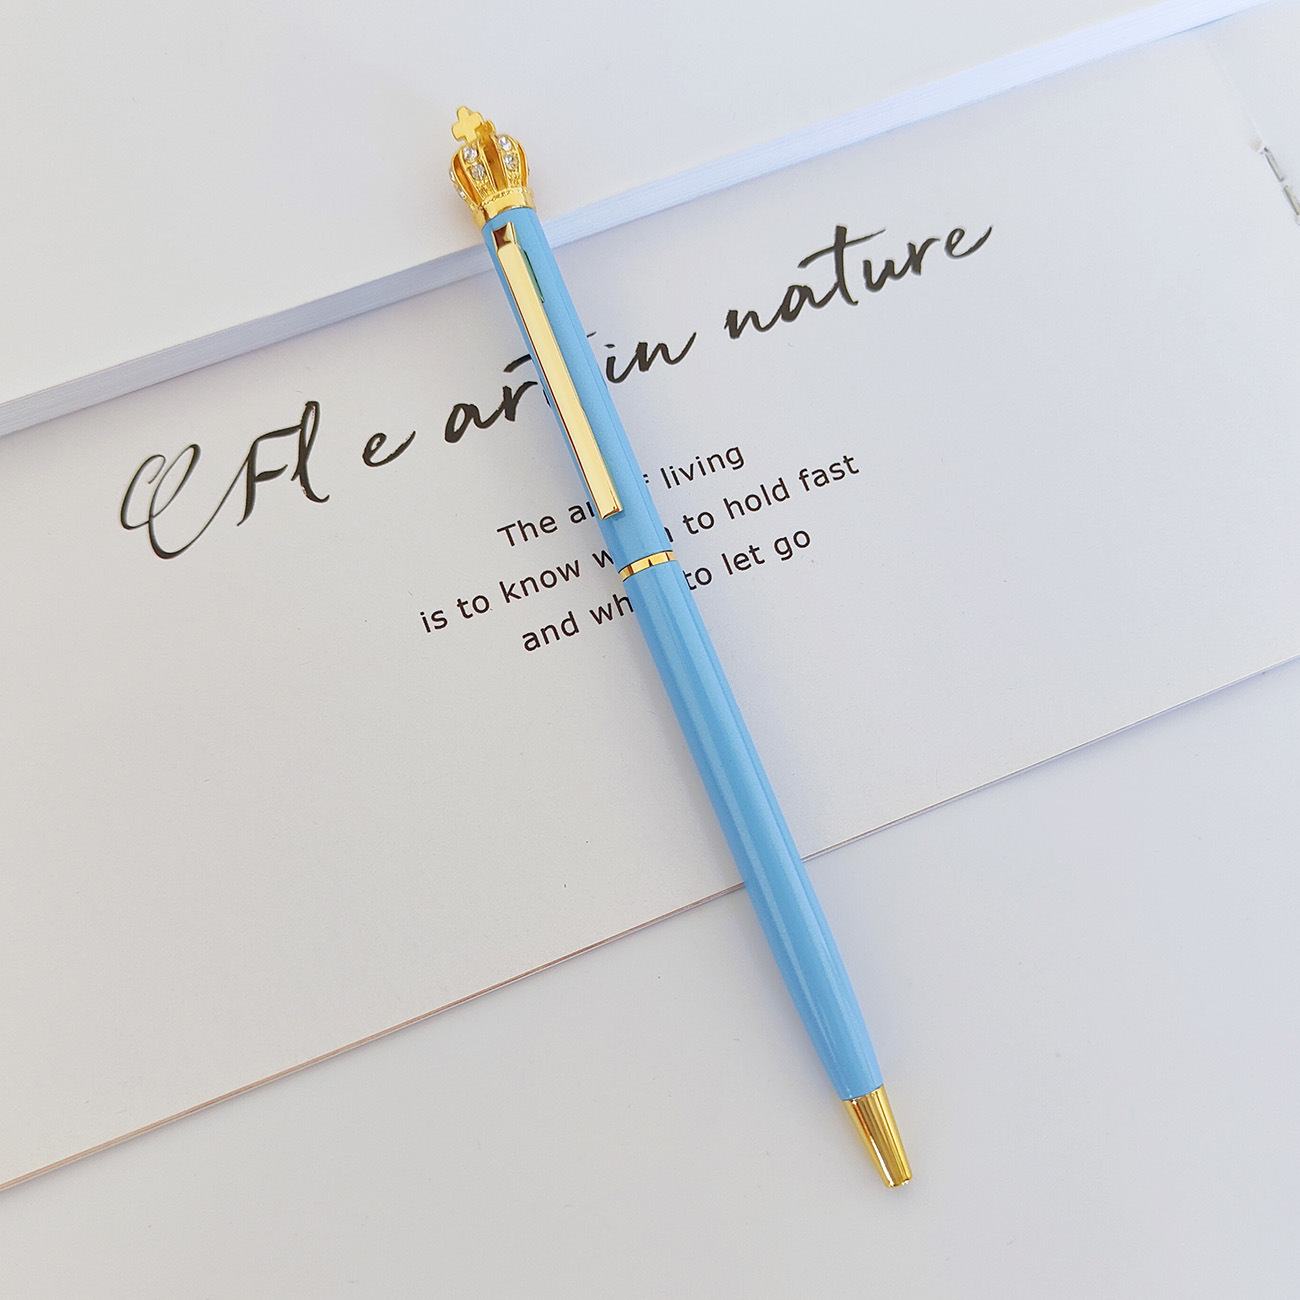 Fl e art in nature
The art of living
is to know when to hold fast
and when to let go